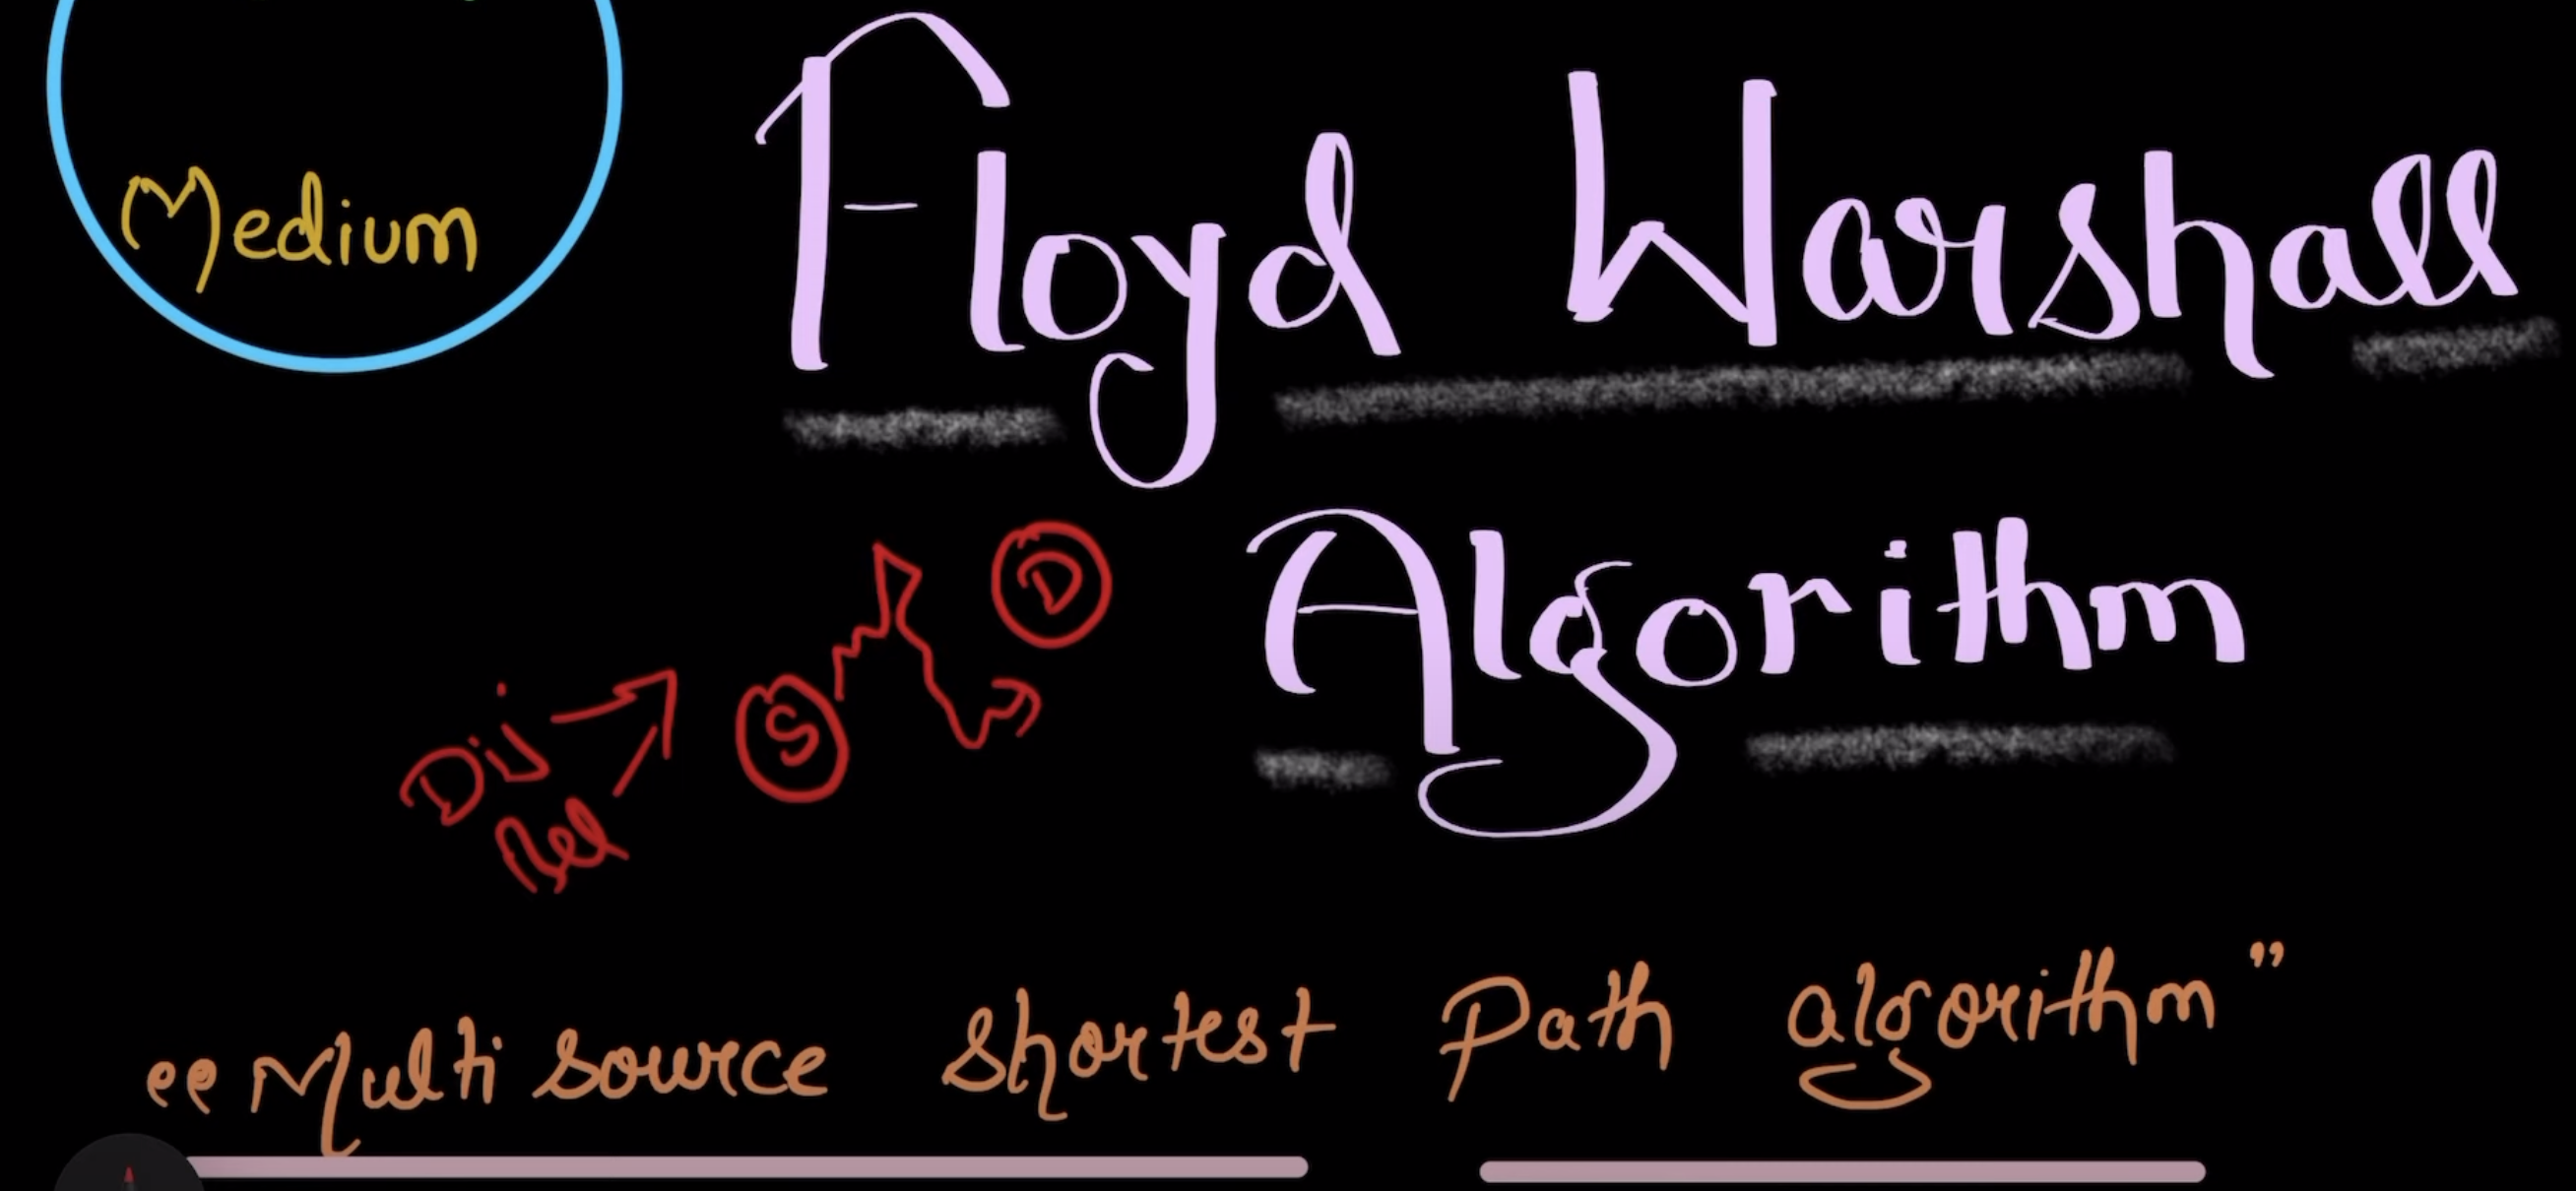 Medium
Floyd Warshall
Algorithm
D
S
Dij
"Multi source shortest Path algorithm"